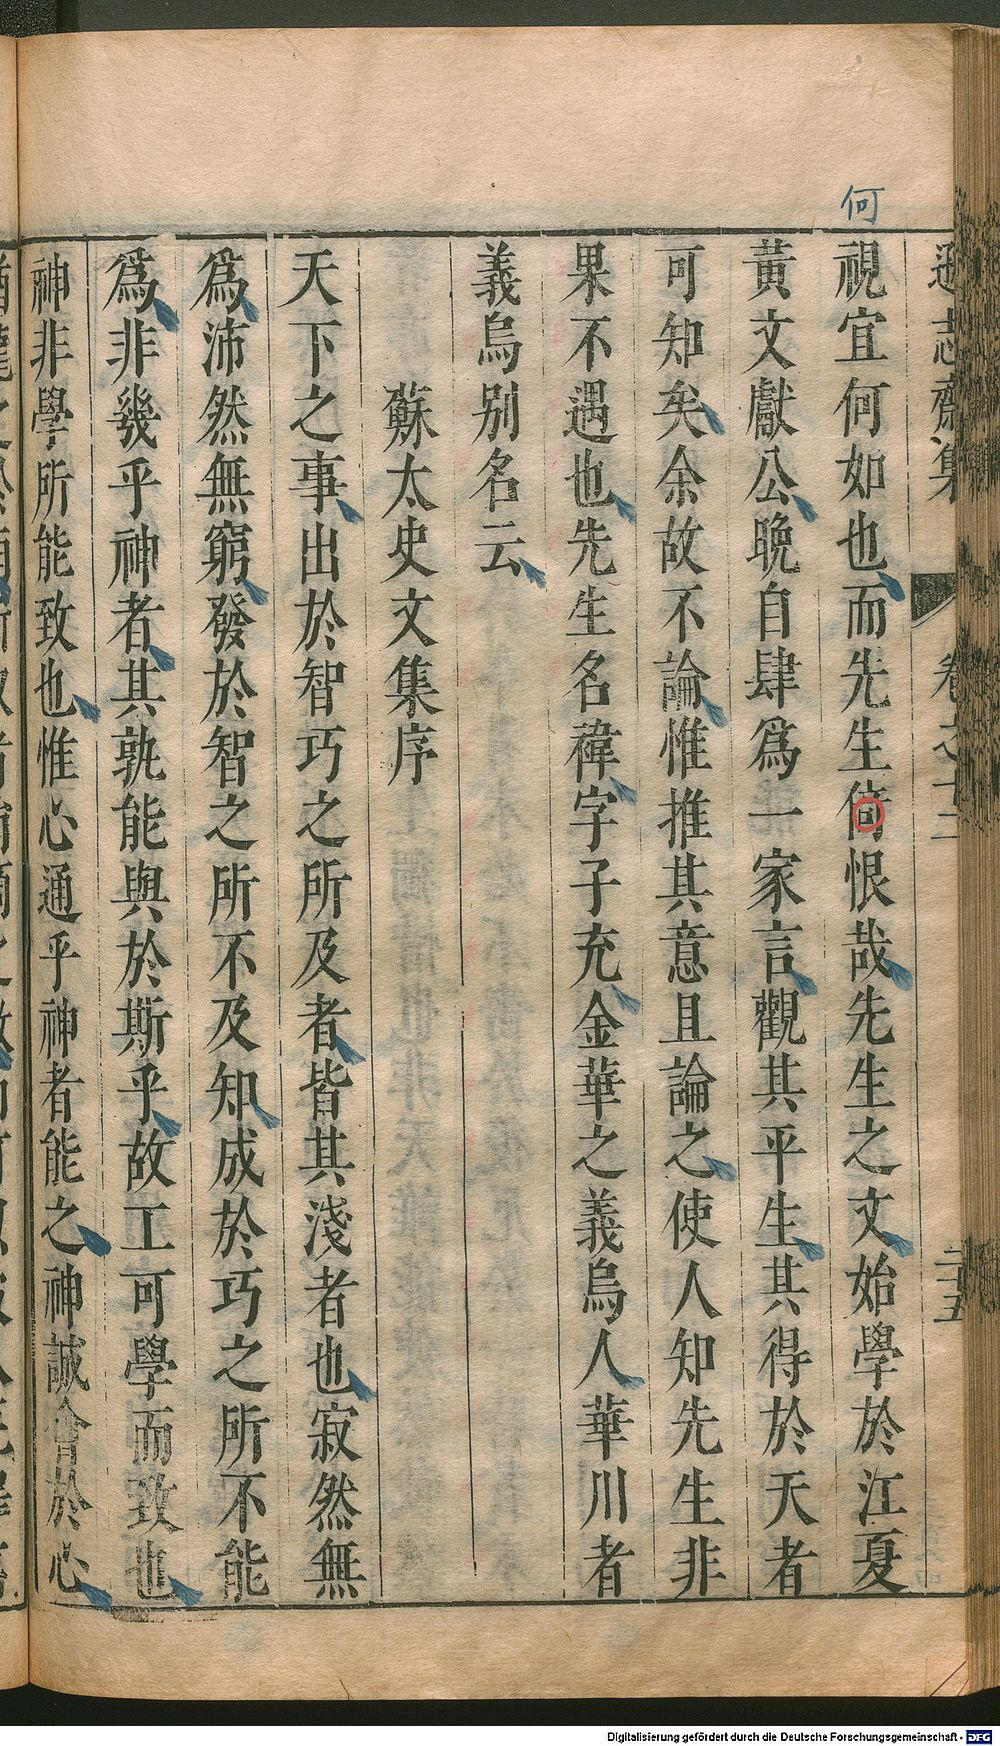 何
遜志齋集 卷之十二 二十五
視宜何如也而先生倚恨哉先生之文始學於江夏
黃文獻公晚自肆爲一家言觀其平生其得於天者
可知矣余故不論惟推其意且論之使人知先生非
果不遇也先生名褘字子充金華之義烏人華川者
義烏别名云
蘇太史文集序
天下之事出於智巧之所及者皆其淺者也寂然無
爲沛然無窮發於智之所不及知成於巧之所不能
爲非幾乎神者其孰能與於斯乎故工可學而致也
神非學所能致也惟心通乎神者能之神誠會於心
Digitalisierung gefördert durch die Deutsche Forschungsgemeinschaft - DFG